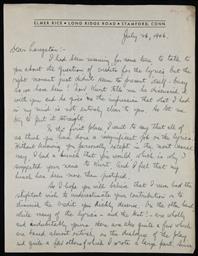 ELMER RICE • LONG RIDGE ROAD • STAMFORD, CONN.
July 26, 1946.
Dear Langston:-
I had been meaning for some time to talk to
you about the question of credits for the lyrics but the
right moment just didn't seem to present itself; being
so far from here! And Kurt tells me he discussed it
with you and he gives me the impression that what I had
in my mind is not entirely clear to you. So let me
try to put it straight.
In the first place, I want to say that all of
us think you have done a magnificent job on the lyrics.
Without knowing you personally except in the most casual
way, I had a hunch that you would which is why I
suggested your name to Kurt. And I feel that my
hunch has been more than justified.
So I hope you will believe that I never had the
slightest wish to underestimate your contribution or to
diminish the credit you highly deserve. On the other hand
while many of the lyrics - and the best! - are wholly
and indubitably yours, there are also quite a few which
are based almost entirely on the dialogue of the play
and quite a few others of which I wrote a large part. Since